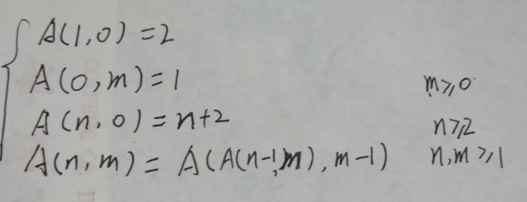 A(1,0)=2
A(0,m)=1 m≥0
A(n,0)=n+2 n≥2
A(n,m)=A(A(n-1,m),m-1) n,m≥1